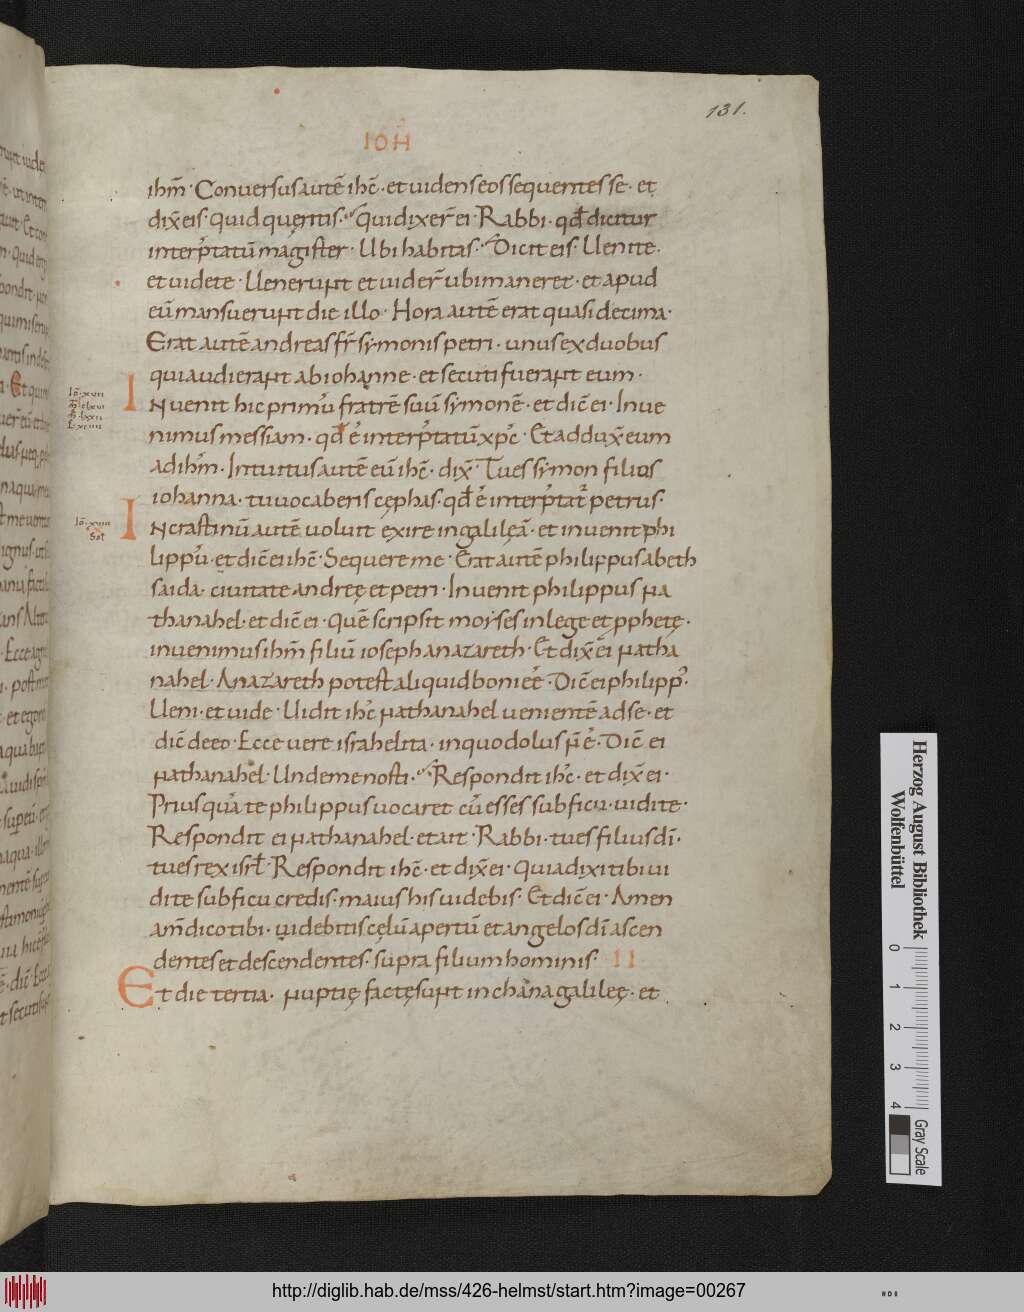 131.
IOH
ihm̄· Conuersus autē ihc̄· et uidens eos sequentes se· et
dix̄ eis· Quid queritis· Qui dixer̄ ei· Rabbi· qđ dicitur
interp̄tatū magister· Ubi habitas· Dicit eis· Uenite·
et uidete· Uenerunt et uider̄ ubi maneret· et apud
eū manserunt die illo· Hora autē erat quasi decima·
Erat autē andreas fr̄ symonis petri· unus ex duobus
qui audierant ab iohanne· et secuti fuerant eum·
Inuenit hic primū fratrē suū symonē· et dic̄ ei· Inue
nimus messiam· qđ ē interp̄tatū xp̄c· Et addux̄ eum
ad ihm̄· Intuitus autē eū ihc̄· dix̄· Tu es symon filius
iohanna· tu uocaberis cęphas· qđ ē interp̄tat᷑ petrus·
In crastinū autē uoluit exire in galileā· et inuenit phi
lippū· et dic̄ ei ihc̄· Sequere me· Erat autē philippus a beth
saida· ciuitate andreę et petri· Inuenit philippus na
thanahel· et dic̄ ei· Quē scripsit moyses in lege et p̄phetę·
inuenimus ihm̄ filiū ioseph a nazareth· Et dix̄ ei natha
nahel· A nazareth potest aliquid boni eē· Dic̄ ei philipp᷒·
Ueni· et uide· Uidit ihc̄ nathanahel uenientē ad se· et
dic̄ de eo· Ecce uere israhelita· in quo dolus n̄ ē· Dic̄ ei
nathanahel· Unde me nosti· Respondit ihc̄· et dix̄ ei·
Priusquā te philippus uocaret cū esses sub ficu· uidi te·
Respondit ei nathanahel· et ait· Rabbi· tu es filius dī·
tu es rex isrł· Respondit ihc̄· et dix̄ ei· Quia dixi tibi ui
di te sub ficu credis· maius his uidebis· Et dic̄ ei· Amen
am̄ dico tibi· uidebitis cęlū apertū et angelos dī ascen
dentes et descendentes· supra filium hominis· II
Et die tertia· nuptię factę sunt in chana galileę· et
Herzog August Bibliothek
Wolfenbüttel
0 1 2 3 4
Gray Scale
http://diglib.hab.de/mss/426-helmst/start.htm?image=00267